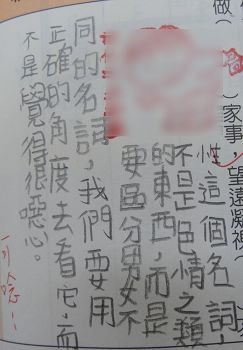 做（
）家事，望遠凝視
性這個名詞，
不是色情之類
的東西，而是
要區分男女不
同的名詞，我們要用
正確的角度去看它，而
不是覺得很噁心。